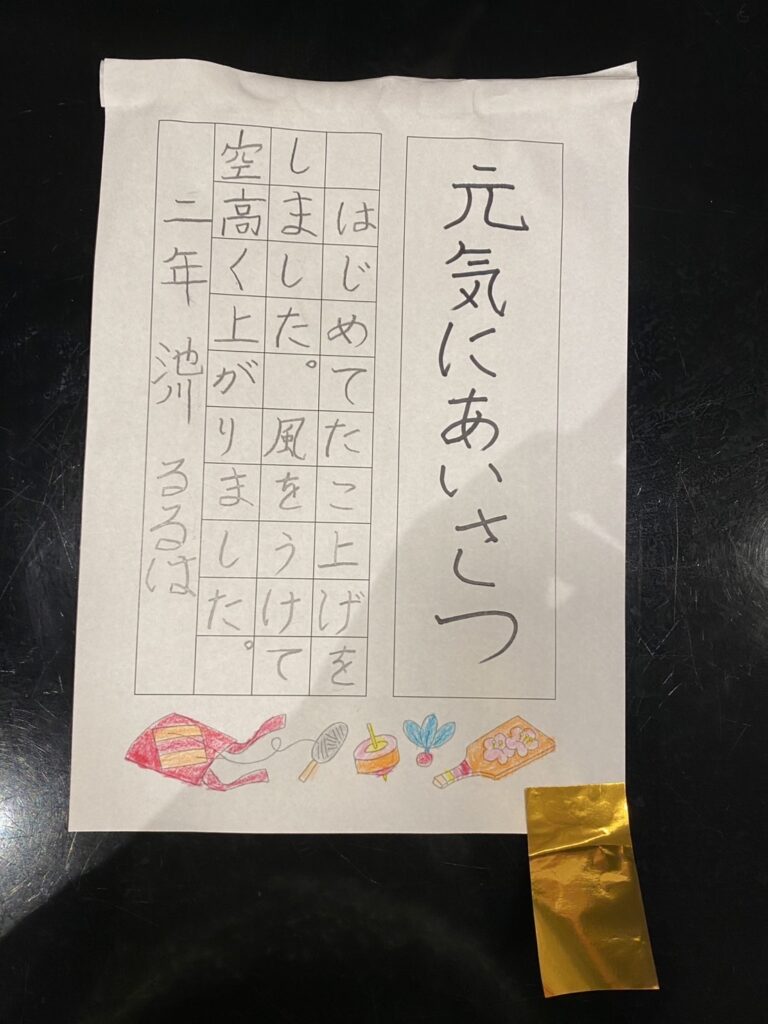 元気にあいさつ
はじめてたこ上げを
しました。風をうけて
空高く上がりました。
二年 池川 るるは